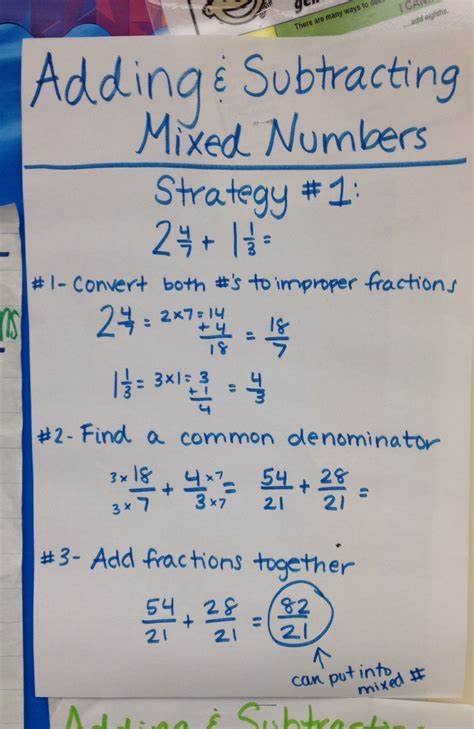 There are many ways to
I CAN
add eighths.
Adding & Subtracting
Mixed Numbers
Strategy #1:
2 4/7 + 1 1/3 =
#1- Convert both #'s to improper fractions
2 4/7 = 2x7=14 +4 18 = 18/7
1 1/3 = 3x1=3 +1 4 = 4/3
#2- Find a common denominator
3x 18/3x 7 + 4 x7/3 x7 = 54/21 + 28/21 =
#3- Add fractions together
54/21 + 28/21 = 82/21
can put into
mixed #
Adding & Subtracting